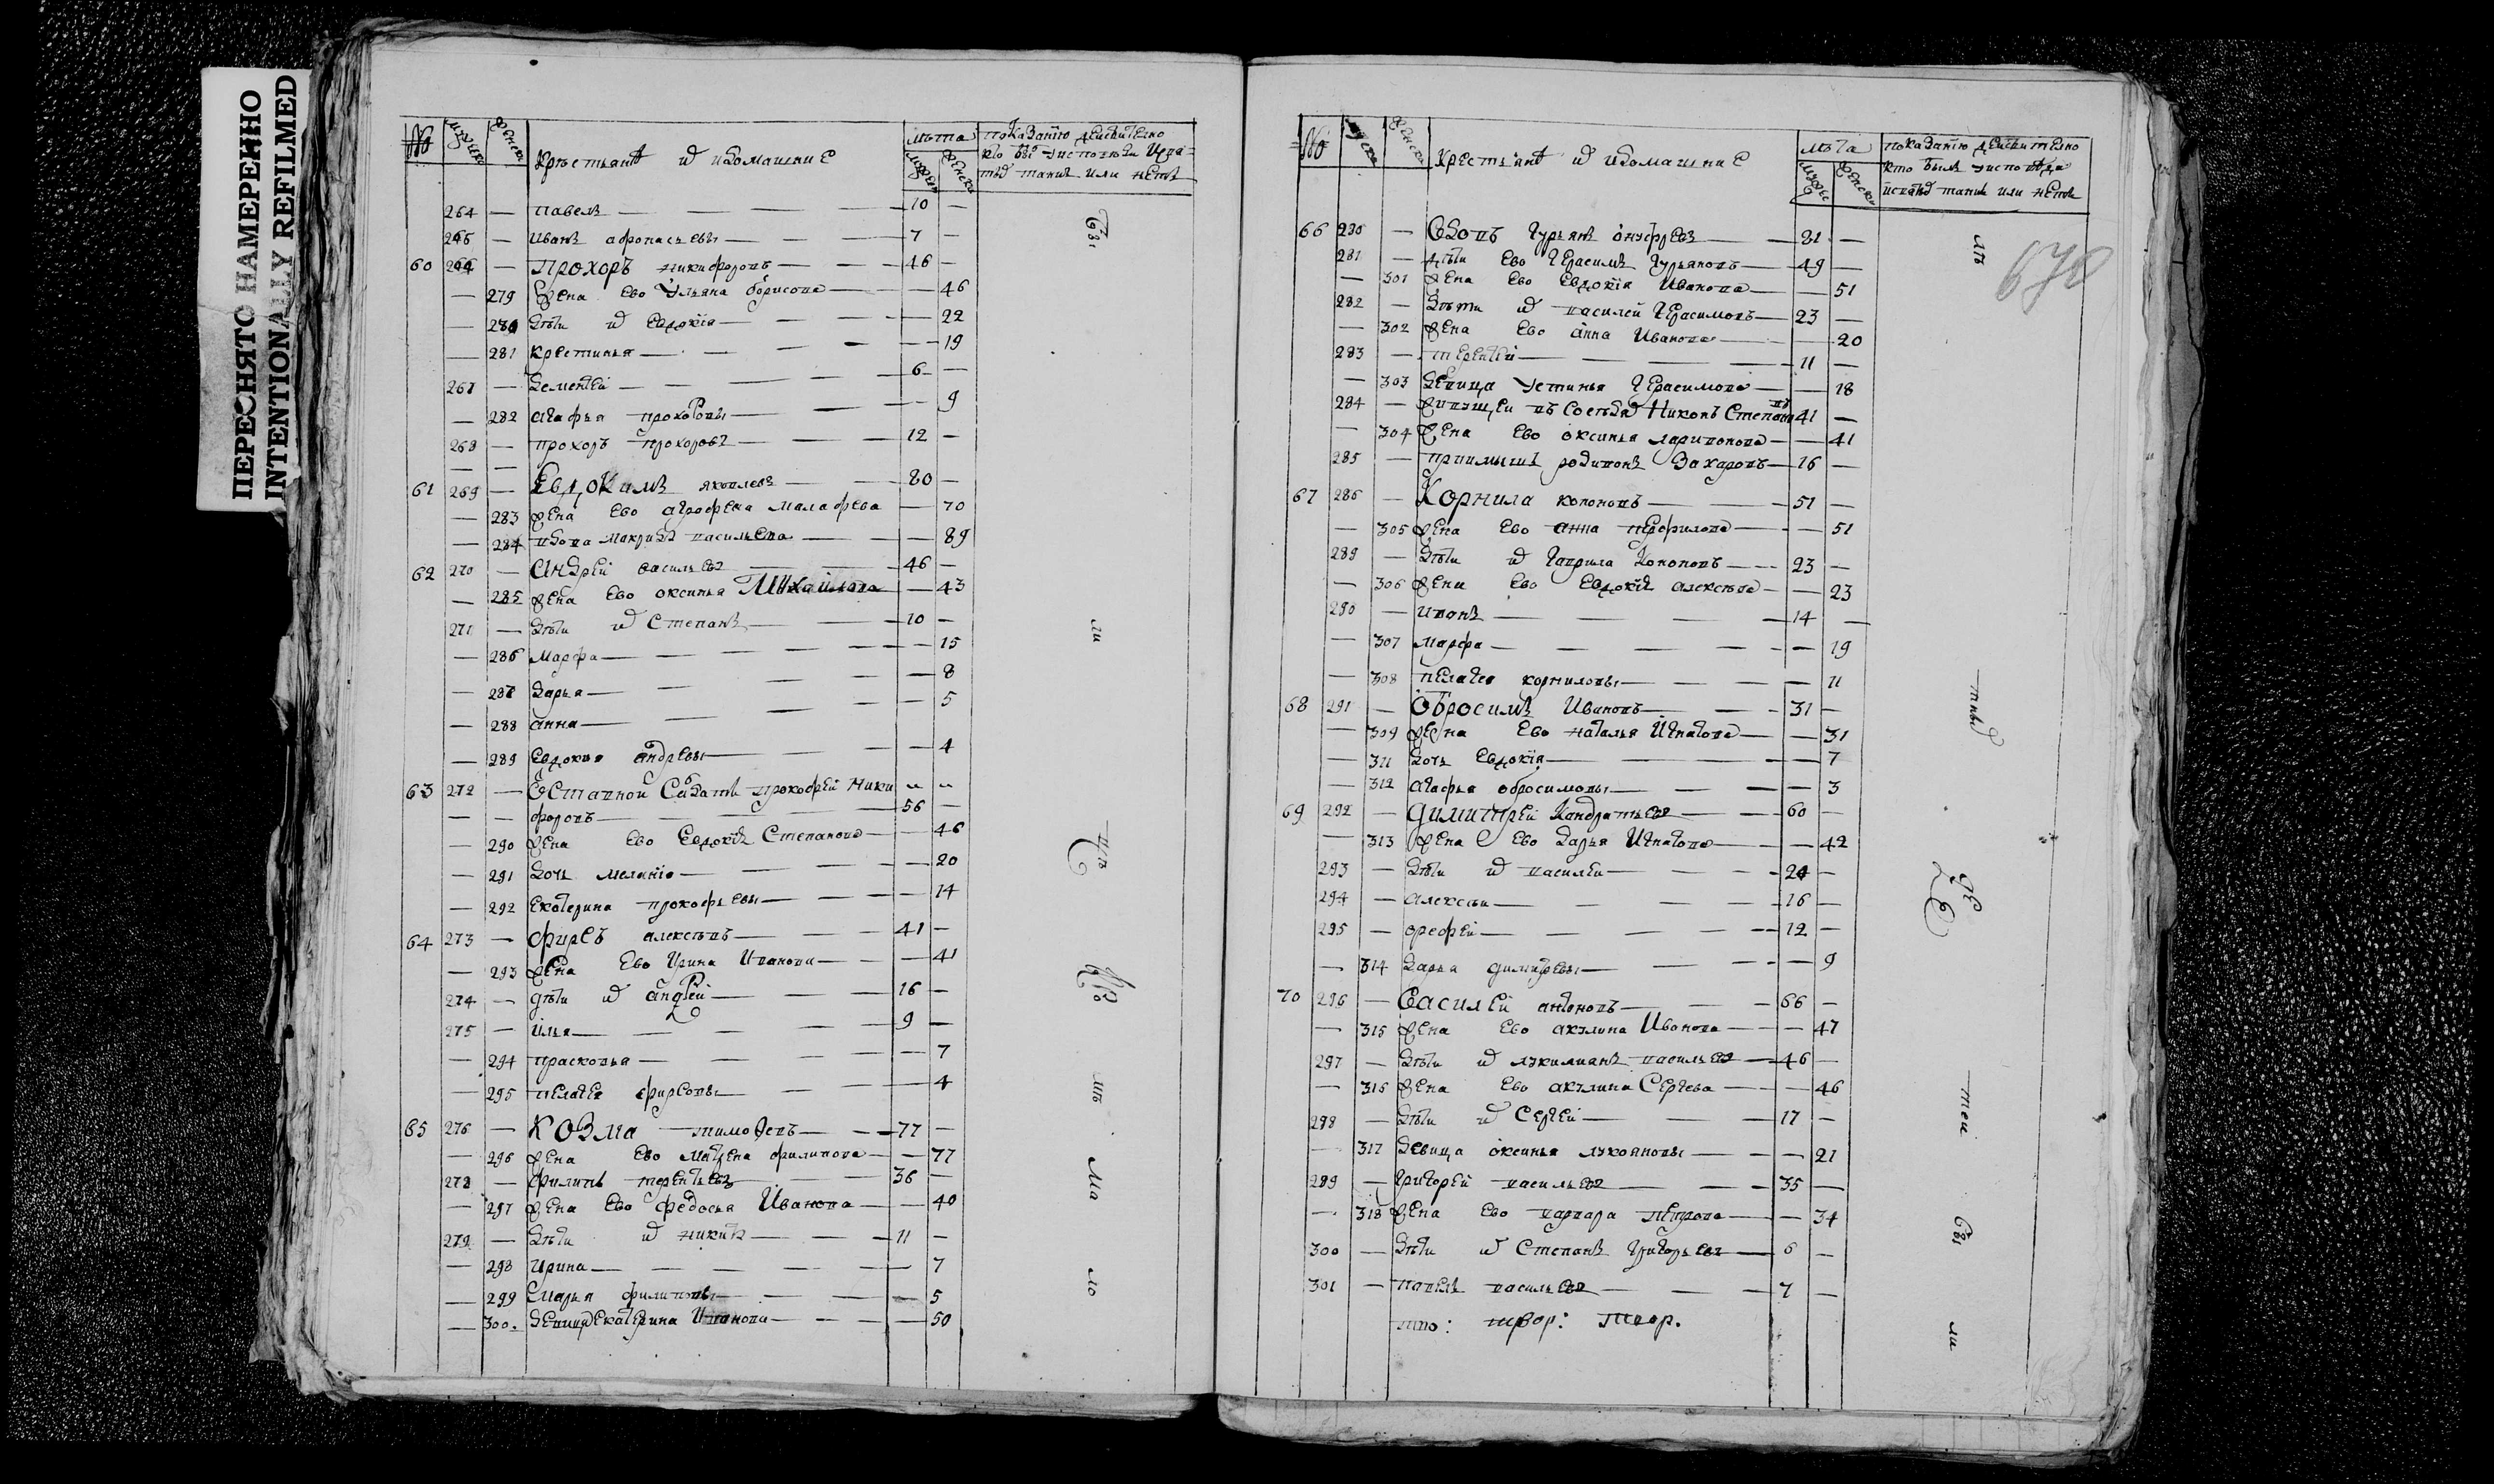 ПЕРЕСНЯТО НАМЕРЕННО
INTENTIONALLY REFILMED
№ мужеска женска Крестьянѣ и ихъ домашние лѣта показанию действително
264 — павелъ — 10 —
265 — Иванъ афонасьевы — 7 —
60 266 — Прохоръ никифоровъ — 46 —
— 279 жена ево Ульяна борисова — 46
— 280 дѣти их Евдокїя — 22
— 281 крестинья — 19
267 — дементей — 6 —
— 282 агафья прохоровы — 9
268 — прохоръ прохоровъ — 12 —
61 269 — Евдокимъ яковлевъ — 80 —
— 283 жена ево агрофена малафева — 70
— 284 вдова макрида васильева — 89
62 270 — Андрей васильевъ — 46 —
— 285 жена ево оксинья Михайлова — 43
271 — дѣти их Степанъ — 10 —
— 286 Марфа — 15
— 287 дарья — 8
— 288 анна — 5
— 289 Евдокия андреевы — 4
63 272 — Отставной Салдатъ прокофей Ники
— — форовъ — 56 —
— 290 жена ево Евдокия Степанова — 46
— 291 дочь меланїя — 20
— 292 Екатерина прокофьевы — 14
64 273 — фирсъ алексѣевъ — 41 —
— 293 жена ево Ирина Иванова — 41
274 — дѣти их андрей — 16 —
275 — илья — 9 —
— 294 прасковья — 7
— 295 пелагея фирсовы — 4
65 276 — Козма тимофеевъ — 77 —
— 296 жена ево матрена филипова — 77
278 — филипъ терентьевъ — 36 —
— 297 жена ево федосья Иванова — 40
279 — дѣти их никита — 11 —
— 298 Ирина — 7
— 299 Марья филиповы — 5
— 300 девица Екатерина Иванова — 50
№ мужеска женска Крестьянѣ и ихъ домашние лѣта показанию действително
кто былъ у исповеди
и святѣй таинѣ или нетъ
66 280 — Вдовъ Гурьянъ онуфревъ — 81 —
281 — дѣти ево Герасимъ Гурьяновъ — 49 —
— 301 жена ево Евдокїя Иванова — 51
282 — дѣти их василей Герасимовъ — 23 —
— 302 жена ево анна Иванова — 20
283 — терентей — 11 —
— 303 девица Устинья Герасимова — 18
284 — живущей въ соседях Никонъ Степановъ 41 —
— 304 жена ево оксинья ларионова — 41
285 — приимышъ родионъ Захаровъ — 16 —
67 286 — Корнила кононовъ — 51 —
— 305 жена ево анна перфилова — 51
289 — дѣти их Гаврила Кононовъ — 23 —
— 306 жена ево Евдокїя алексѣева — 23
290 — иванъ — 14 —
— 307 марфа — 19
— 308 пелагея корниловы — 11
68 291 — Обросимъ Ивановъ — 31 —
— 309 жена ево наталья Игнатова — 31
— 311 дочь Евдокїя — 7
— 312 агафья обросимовы — 3
69 292 — Димитрей Кандратьевъ — 60 —
— 313 жена ево дарья Игнатова — 42
293 — дѣти их василей — 24 —
294 — алексѣй — 16 —
295 — ерофей — 12 —
— 314 дарья димитревы — 9
70 296 — Василей антоновъ — 66 —
— 315 жена ево акулина Иванова — 47
297 — дѣти их лукиянъ васильевъ — 46 —
— 316 жена ево акулина Сергева — 46
298 — дѣти их Сергей — 17 —
— 317 девица оксинья лукояновы — 21
299 — Григорей васильевъ — 35 —
— 318 жена ево варвара петрова — 34
300 — дѣти их Степанъ Григорьевъ — 6 —
301 — павелъ васильевъ — 7 —